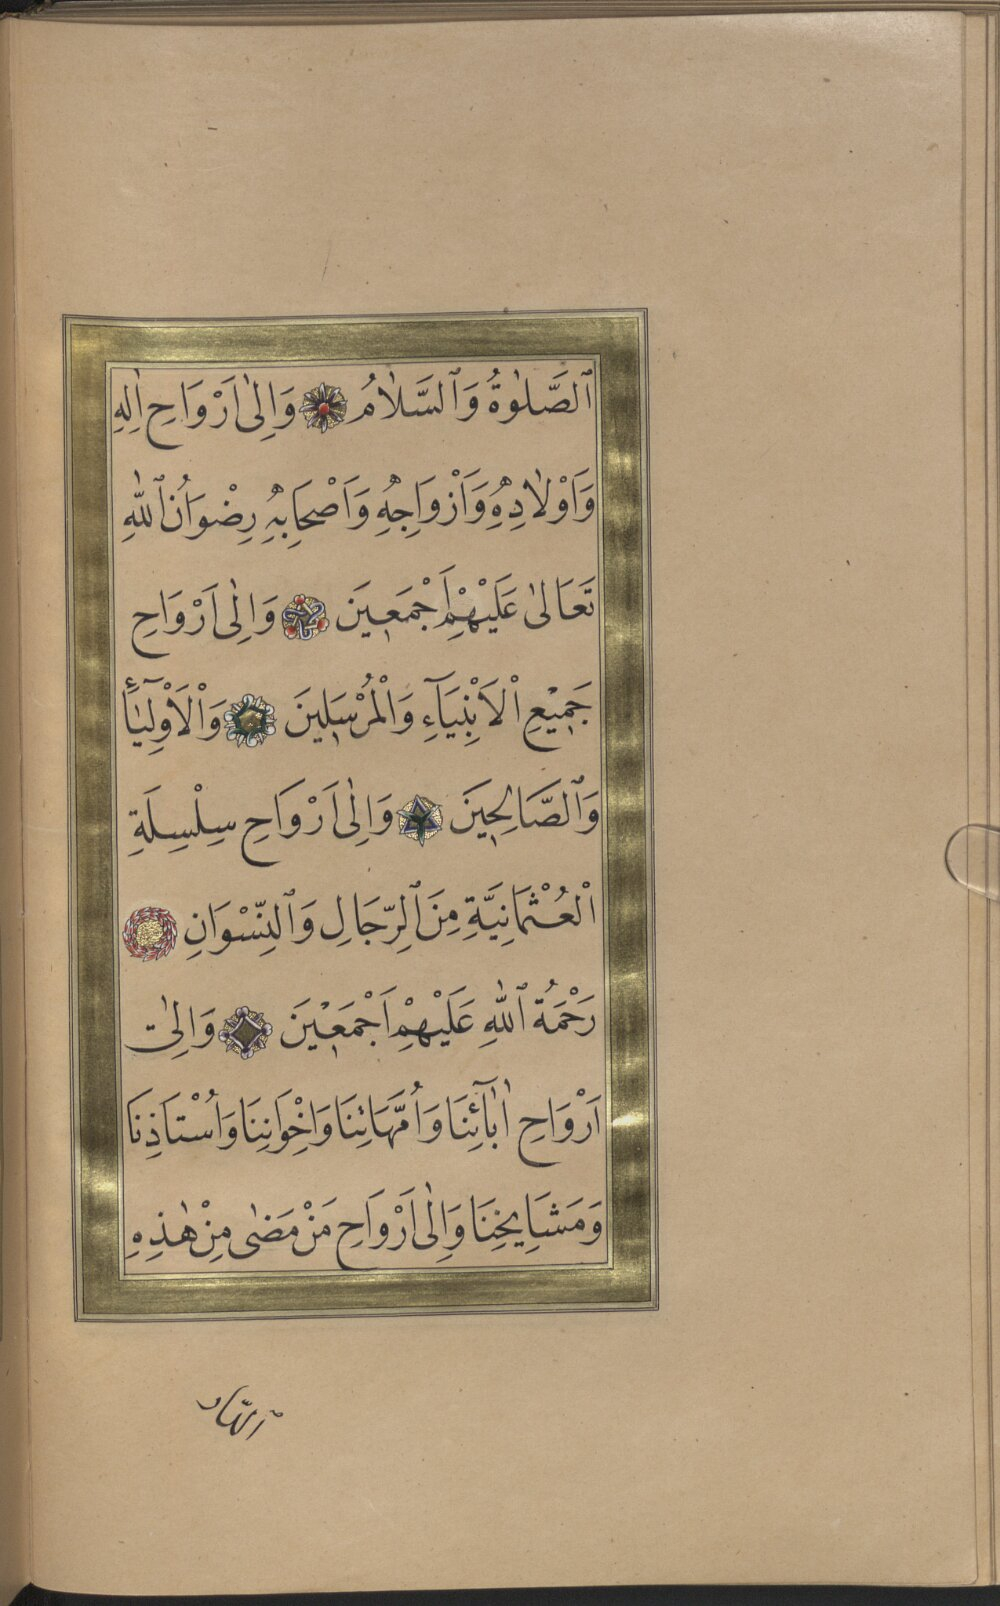 ٱلصَّلٰوةُ وَٱلسَّلَامُ وَاِلٰى اَرْوَاحِ اٰلِهِ
وَاَوْلَادِهِ وَاَزْوَاجِهِ وَاَصْحَابِهِ رِضْوَانُ ٱللّٰهِ
تَعَالٰى عَلَيْهِمْ اَجْمَعِينَ وَاِلٰى اَرْوَاحِ
جَمِيعِ اْلاَنْبِيَآءِ وَاْلمُرْسَلِينَ وَاْلاَوْلِيَآءِ
وَٱلصَّالِحِينَ وَاِلٰى اَرْوَاحِ سِلْسِلَةِ
اْلعُثْمَانِيَّةِ مِنَ ٱلرِّجَالِ وَٱلنِّسْوَانِ
رَحْمَةُ ٱللّٰهِ عَلَيْهِمْ اَجْمَعِينَ وَاِلٰى
اَرْوَاحِ اٰبَآئِنَا وَاُمَّهَاتِنَا وَاِخْوَانِنَا وَاُسْتَاذِنَا
وَمَشَايِخِنَا وَاِلٰى اَرْوَاحِ مَنْ مَضٰى مِنْ هٰذِهِ